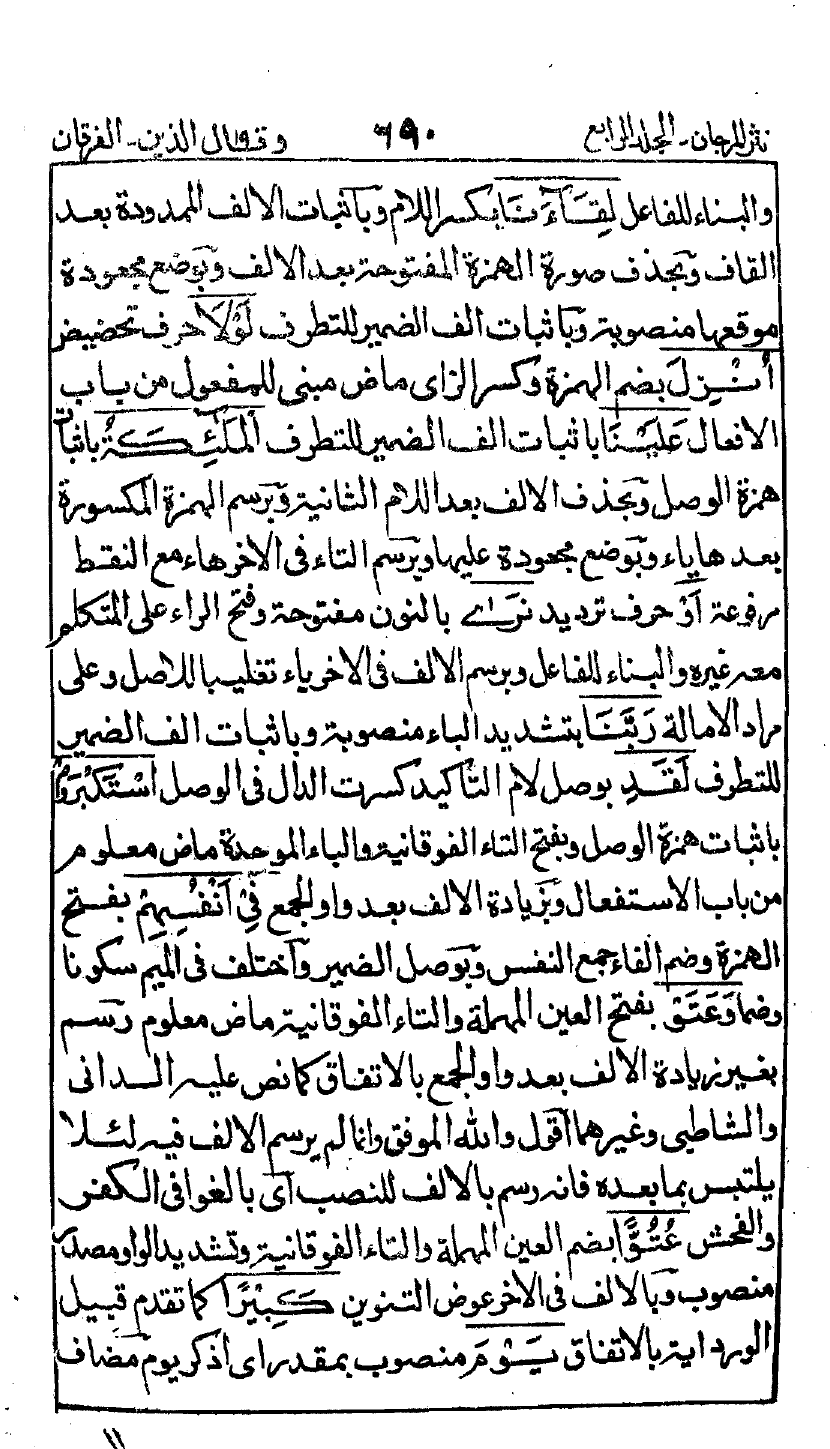 نثر المرجان - المجلد الرابع ٦٩٠ وقال الذين - الفرقان
والبناء للفاعل لِقَآءَنَا بكسر اللام وباثبات الالف الممدودة بعد
القاف وبحذف صورة الهمزة المفتوحة بعد الالف وبوضع مجعودة
موقعها منصوبة وباثبات الف الضمير للتطرف لَوْلَا حرف تحضيض
أُنْزِلَ بضم الهمزة وكسر الزاى ماض مبنى للمفعول من باب
الافعال عَلَيْنَا باثبات الف الضمير للتطرف الْمَلٰٓئِكَةُ باثبات
همزة الوصل وبحذف الالف بعد اللام الثانية وبرسم الهمزة المكسورة
بعدها ياء وبوضع مجعودة عليها وبرسم التاء فى الاخر هاء مع النقط
مرفوعة أَوْ حرف ترديد نَرٰى بالنون مفتوحة وفتح الراء على المتكلم
معه غيره والبناء للفاعل وبرسم الالف فى الاخر ياء تغليبا للاصل وعلى
مراد الامالة رَبَّنَا بتشديد الباء منصوبة وباثبات الف الضمير
للتطرف لَقَدِ بوصل لام التأكيد كسرت الدال فى الوصل اسْتَكْبَرُوْا
باثبات همزة الوصل وبفتح التاء الفوقانية والباء الموحدة ماض معلوم
من باب الاستفعال وبزيادة الالف بعد واو الجمع فِىْ أَنْفُسِهِمْ بفتح
الهمزة وضم الفاء جمع النفس وبوصل الضمير واختلف فى الميم سكونا
وضما وَعَتَوْ بفتح العين المهملة والتاء الفوقانية ماض معلوم رسم
بغير زيادة الالف بعد واو الجمع بالاتفاق كما نص عليه الدانى
والشاطبى وغيرهما أقول والله الموفق وانما لم يرسم الالف فيه لئلا
يلتبس بما بعده فانه رسم بالالف للنصب اى بالغوا فى الكفر
والفحش عُتُوًّا بضم العين المهملة والتاء الفوقانية وتشديد الواو مصدر
منصوب وبالالف فى الاخر عوض التنوين كَبِيْرًا كما تقدم قبيل
الورد اية بالاتفاق يَوْمَ منصوب بمقدر اى اذكر يوم مضاف
١١